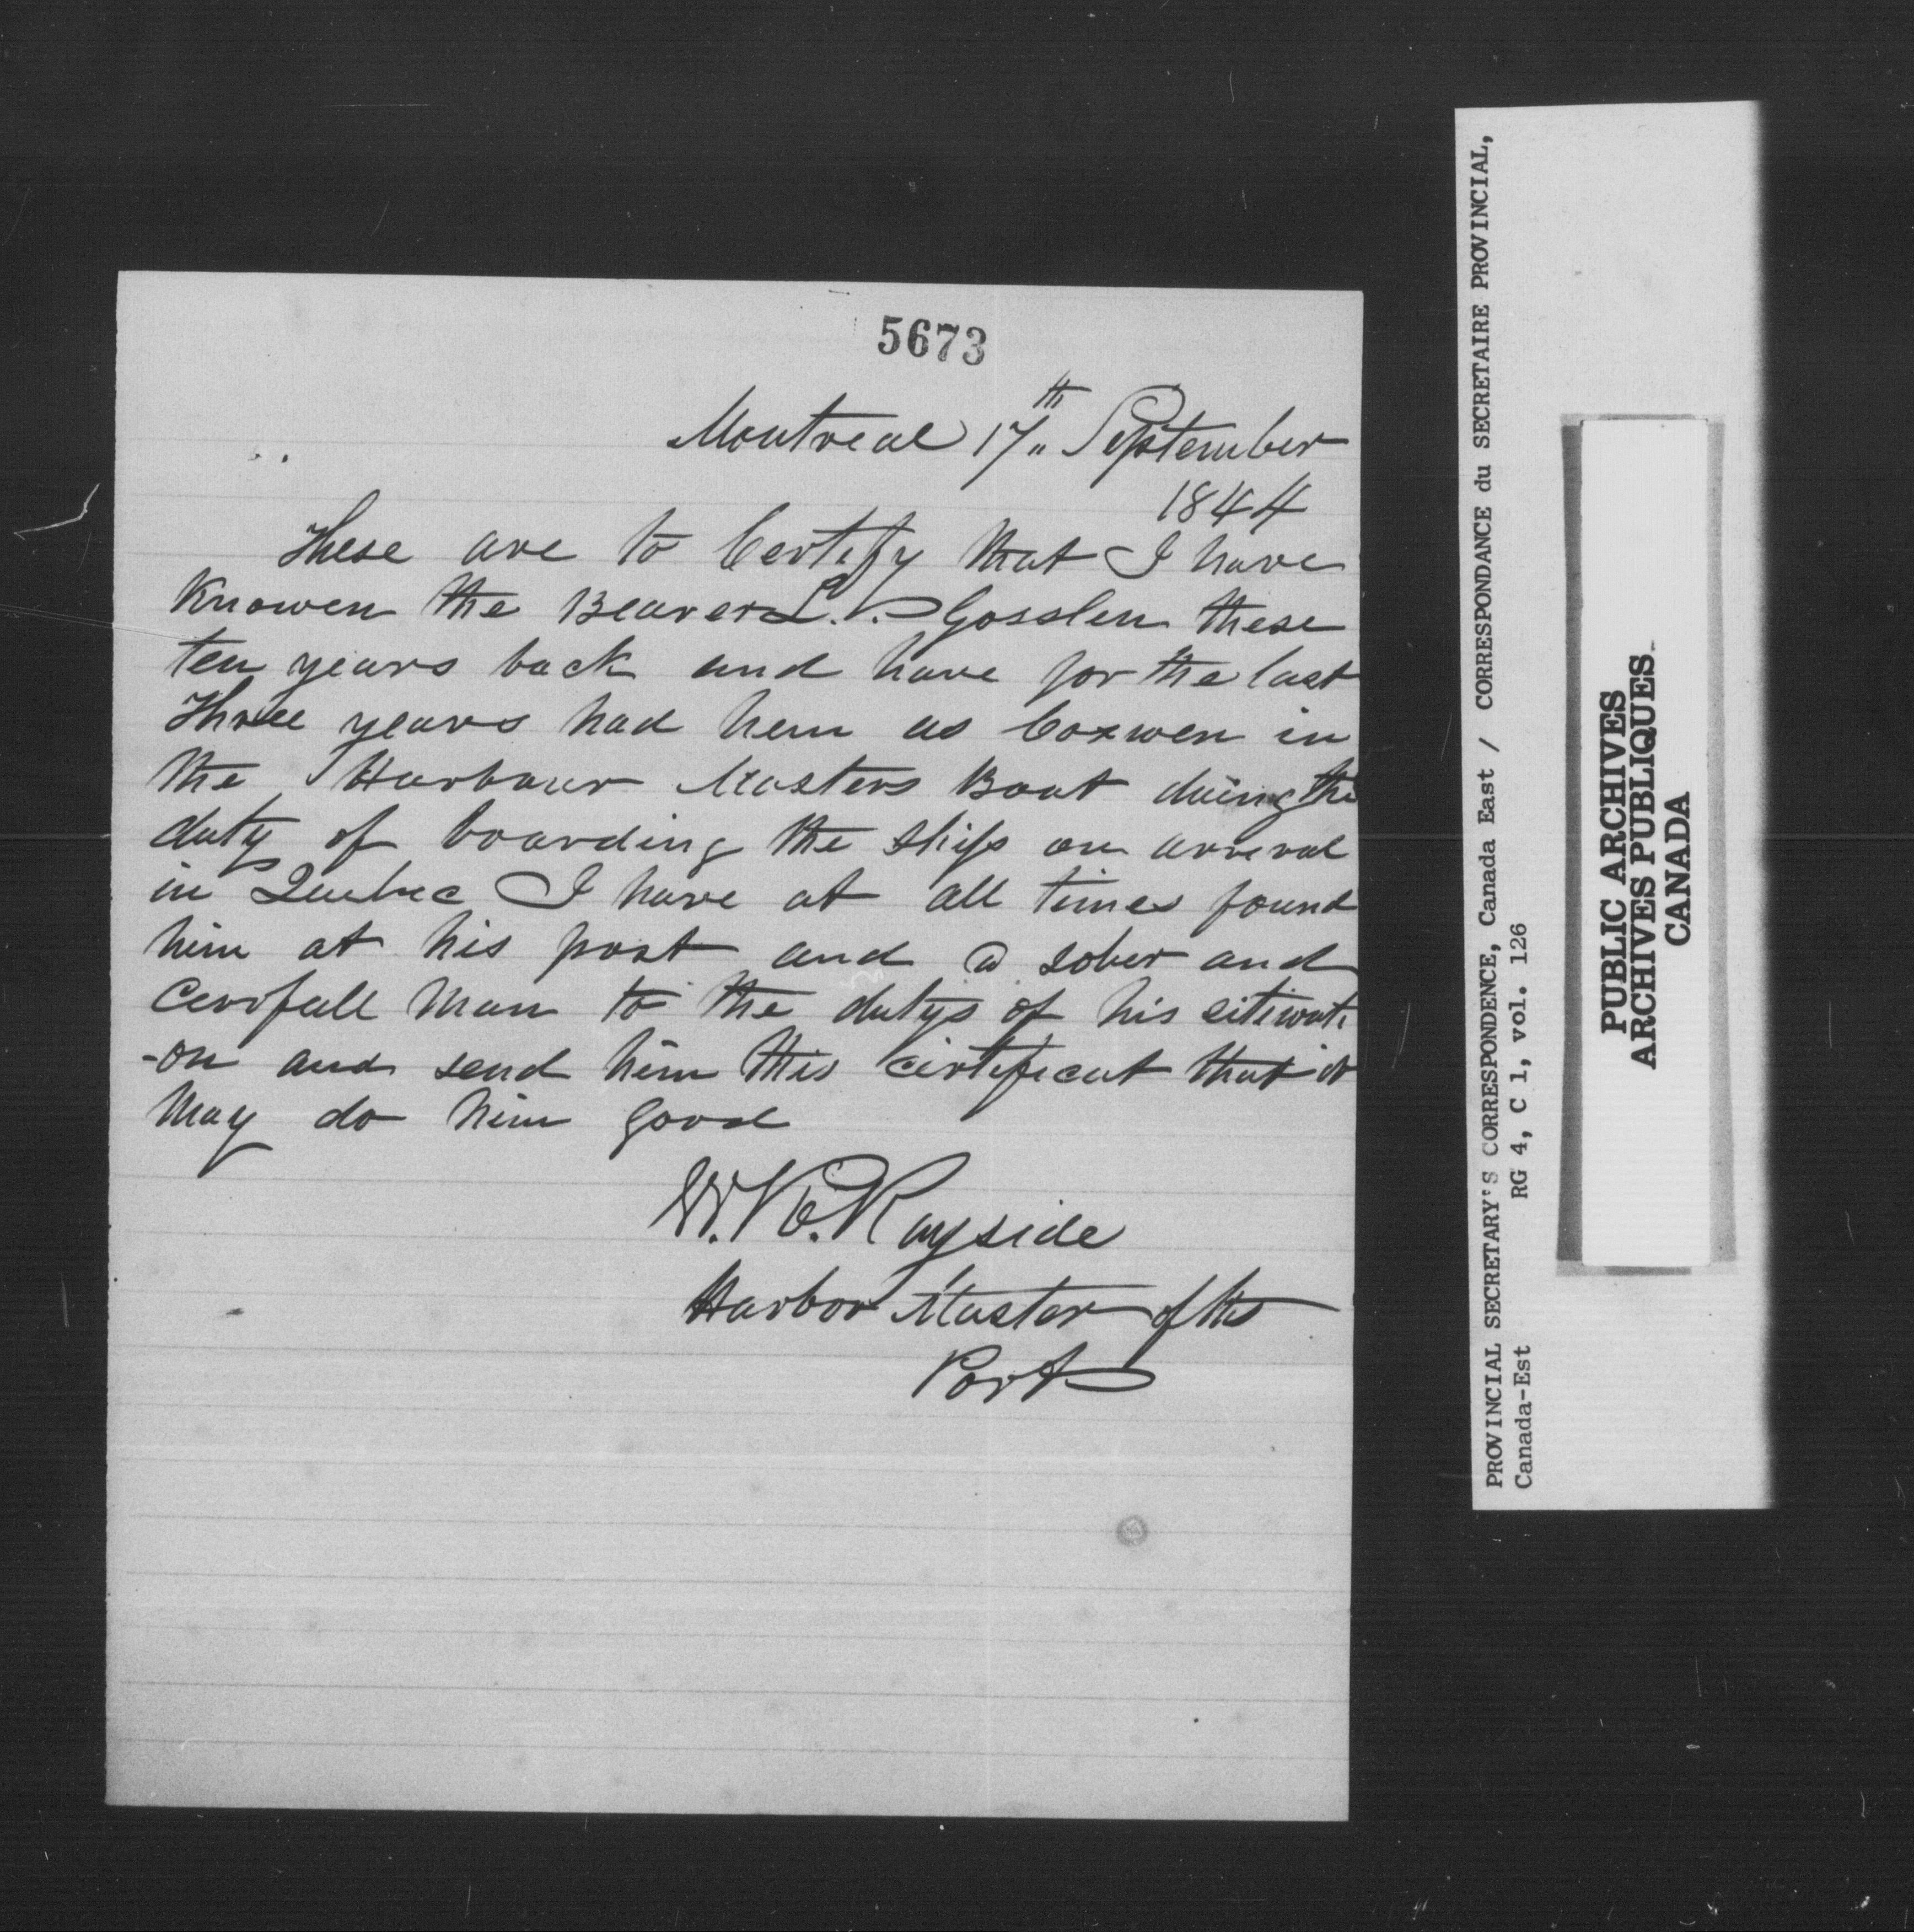 5673
Montreal 17th September
1844
These are to Certify that I have
Knowen the Bearer L. P. Gosslen these
ten years back and have for the last
Three years had hem as Coxwen in
the Harbour Masters Boat duing the
duty of boarding the ships on arrerval
in Quebec I have at all times found
him at his post and a sober and
Cerrfull Man to the dutys of his sitiwati
-on and send him this certificat that it
May do him good
W. Rayside
Harbor Master of this
Port
PROVINCIAL SECRETARY'S CORRESPONDENCE, Canada East / CORRESPONDANCE du SECRETAIRE PROVINCIAL,
Canada-Est RG 4, C 1, vol. 126
PUBLIC ARCHIVES
ARCHIVES PUBLIQUES
CANADA